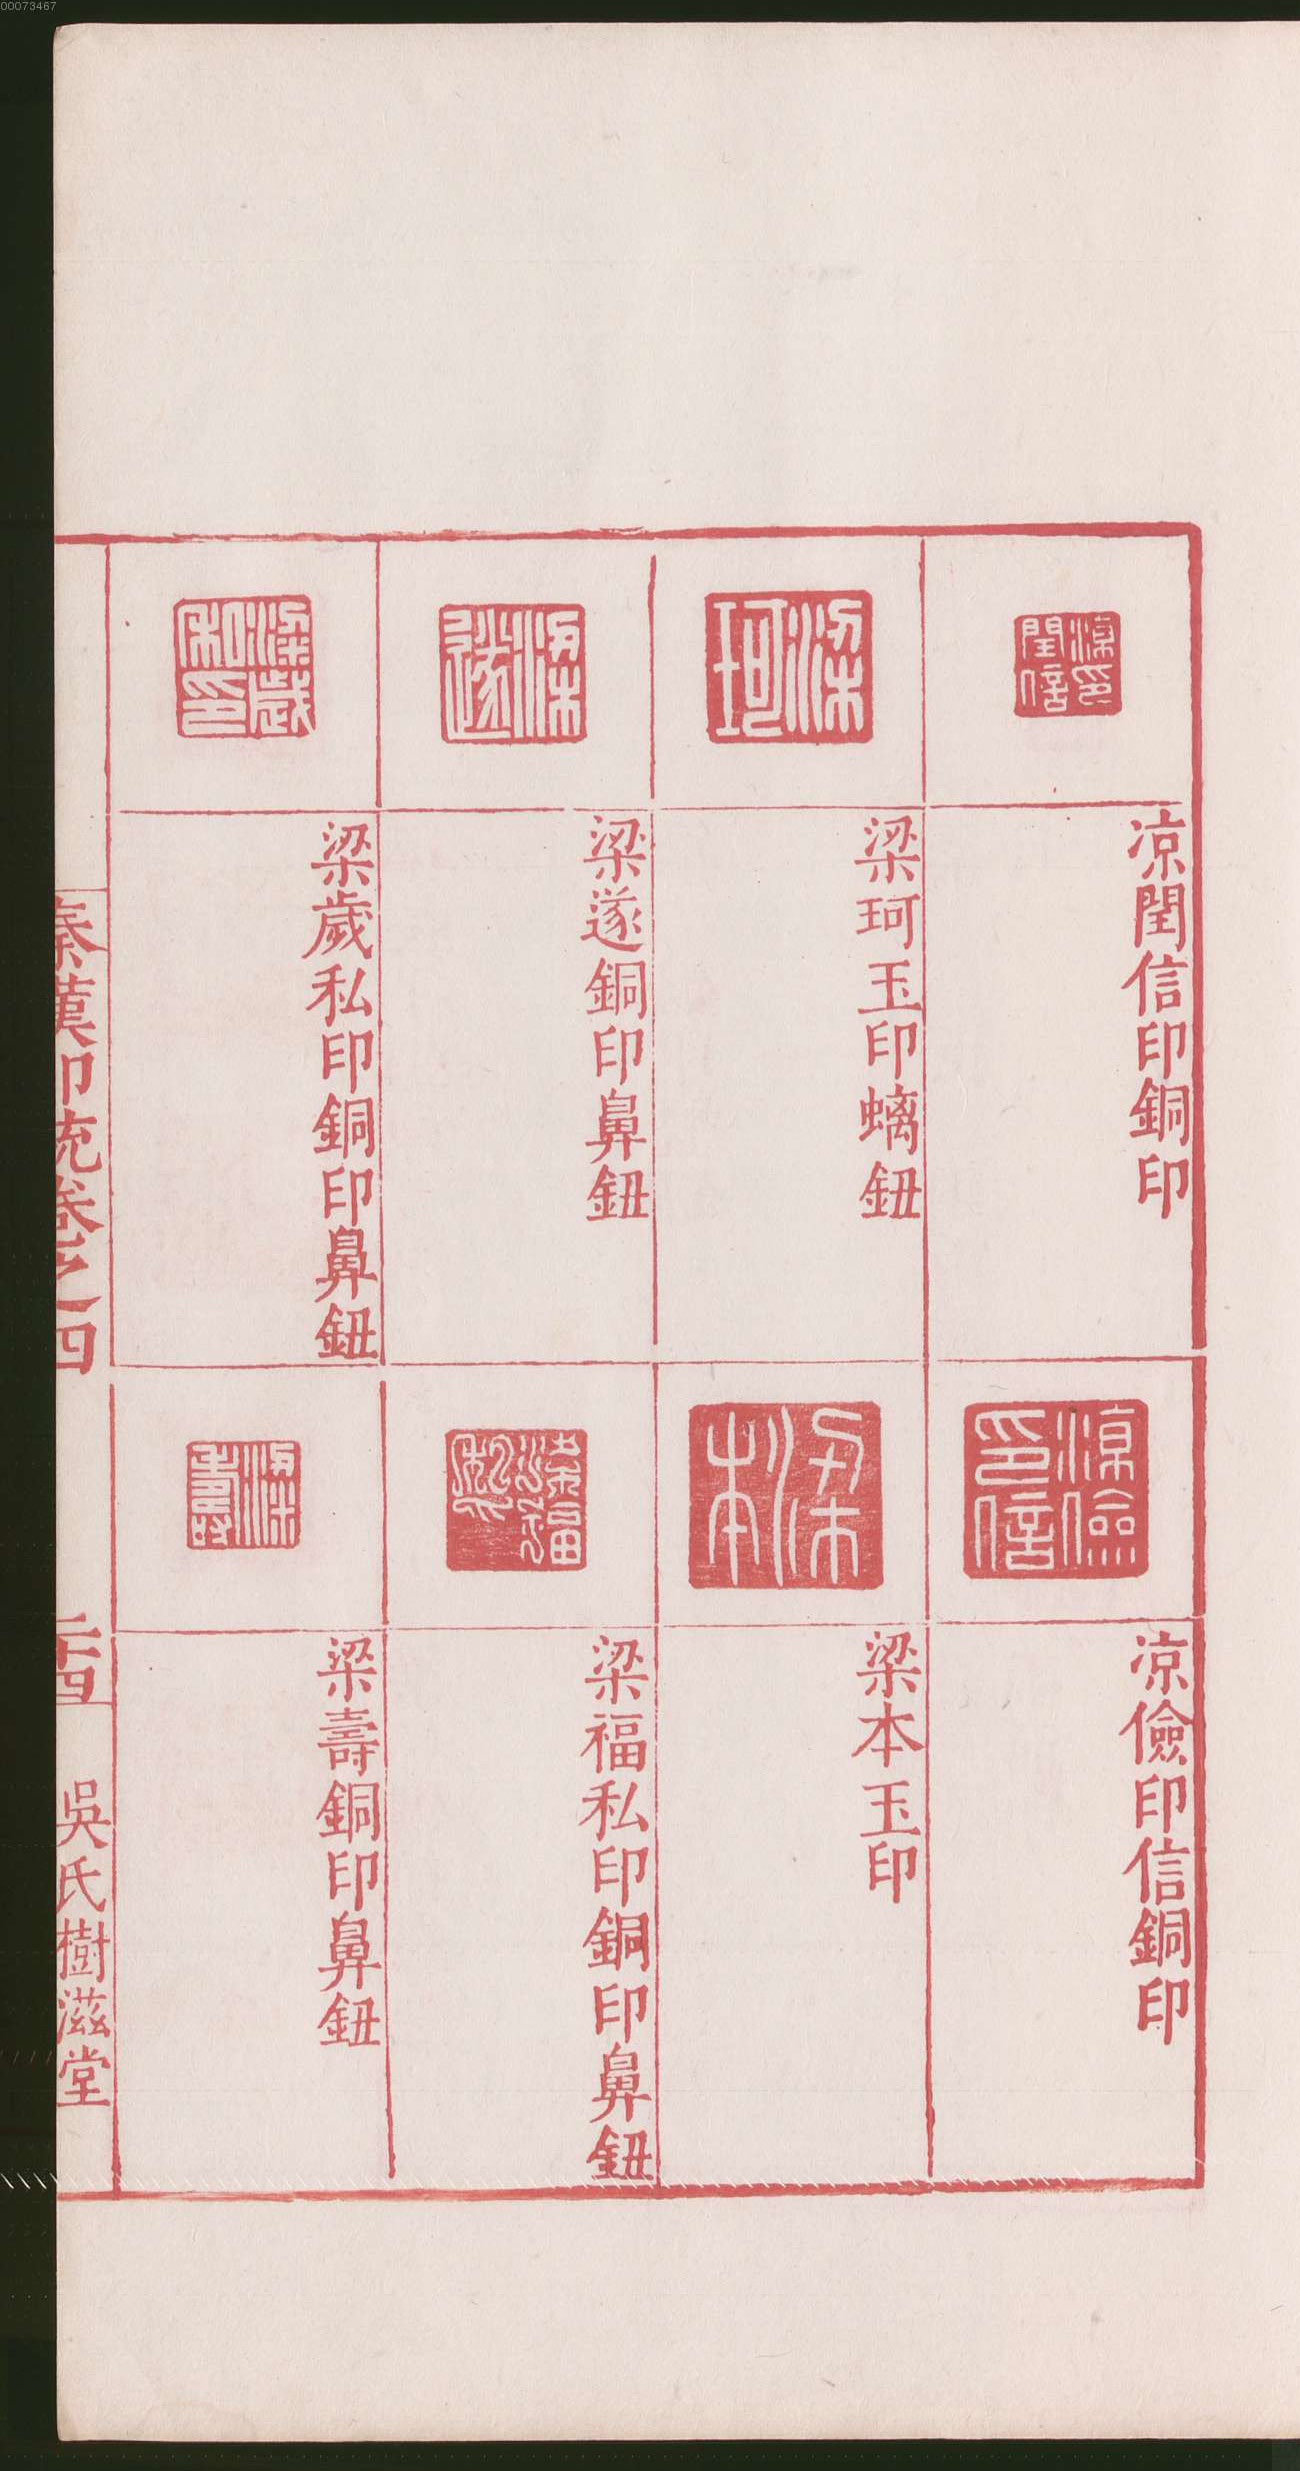 00073467
凉閏信印銅印
凉儉印信銅印
梁珂玉印螭鈕
梁本玉印
梁遂銅印鼻鈕
梁福私印銅印鼻鈕
梁歲私印銅印鼻鈕
梁壽銅印鼻鈕
秦漢印統卷之四
二十四
吳氏樹滋堂